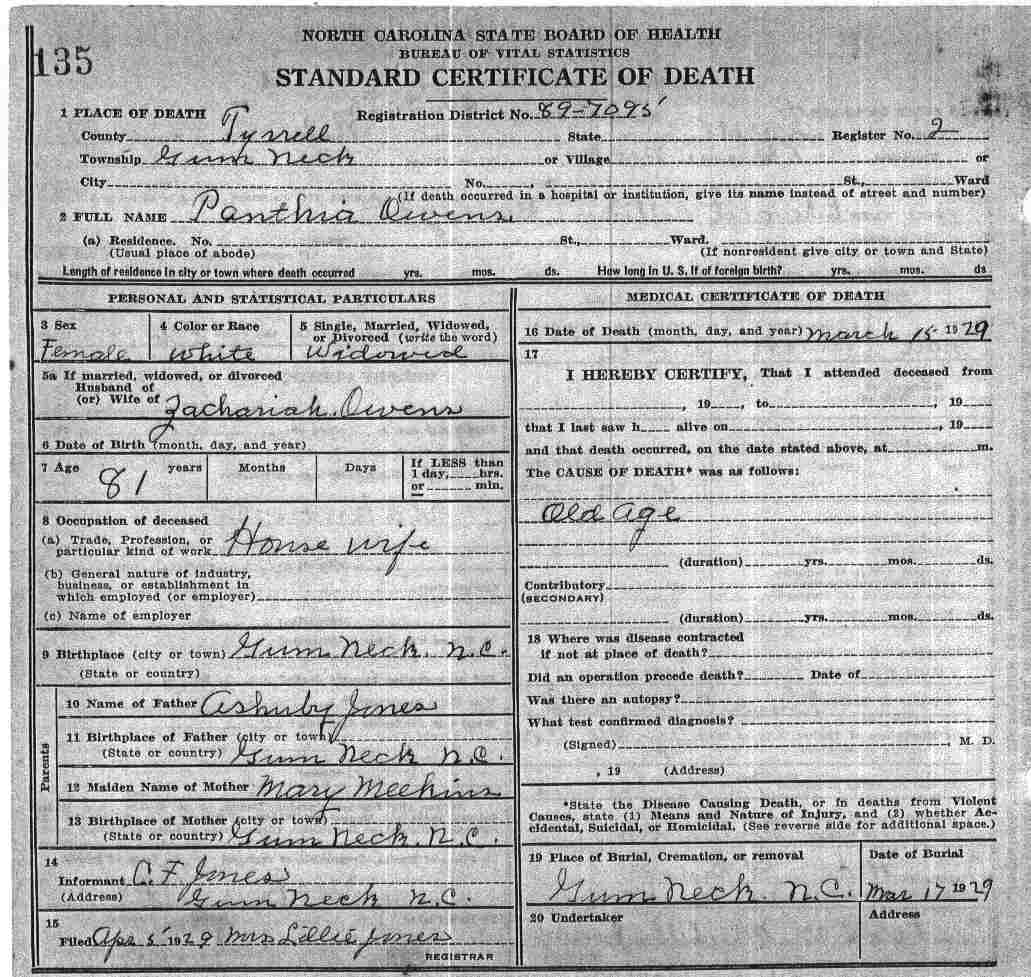 NORTH CAROLINA STATE BOARD OF HEALTH
BUREAU OF VITAL STATISTICS
135
STANDARD CERTIFICATE OF DEATH
1 PLACE OF DEATH Registration District No. 89-7095
County Tyrrell State Register No. 2
Township Gum Neck or Village or
City No. , St., Ward
(If death occurred in a hospital or institution, give its name instead of street and number)
2 FULL NAME Panthia Owens
(a) Residence. No. St., Ward.
(Usual place of abode) (If nonresident give city or town and State)
Length of residence in city or town where death occurred yrs. mos. ds. How long in U. S. If of foreign birth? yrs. mos. ds
PERSONAL AND STATISTICAL PARTICULARS
3 Sex
Female
4 Color or Race
White
5 Single, Married, Widowed,
or Divorced (write the word)
Widowed
5a If married, widowed, or divorced
Husband of
(or) Wife of Zachariah Owens
6 Date of Birth (month, day, and year)
7 Age 81 years Months Days
If LESS than
1 day, hrs.
or min.
8 Occupation of deceased
(a) Trade, Profession, or
particular kind of work House wife
(b) General nature of industry,
business, or establishment in
which employed (or employer)
(c) Name of employer
9 Birthplace (city or town) Gum Neck. N.C.
(State or country)
Parents
10 Name of Father Ashuby Jones
11 Birthplace of Father (city or town)
(State or country) Gum Neck N.C.
12 Maiden Name of Mother Mary Meekins
13 Birthplace of Mother (city or town)
(State or country) Gum Neck N.C.
14
Informant C. F. Jones
(Address) Gum Neck N.C.
15
Filed Apr 5 1929 Mrs Lillie Jones
REGISTRAR
MEDICAL CERTIFICATE OF DEATH
16 Date of Death (month, day, and year) March 15 1929
17
I HEREBY CERTIFY, That I attended deceased from
, 19 , to , 19
that I last saw h alive on , 19
and that death occurred, on the date stated above, at m.
The CAUSE OF DEATH* was as follows:
Old age
(duration) yrs. mos. ds.
Contributory
(SECONDARY)
(duration) yrs. mos. ds.
18 Where was disease contracted
if not at place of death?
Did an operation precede death? Date of
Was there an autopsy?
What test confirmed diagnosis?
(Signed) , M. D.
, 19 (Address)
*State the Disease Causing Death, or in deaths from Violent
Causes, state (1) Means and Nature of Injury, and (2) whether Ac-
cidental, Suicidal, or Homicidal. (See reverse side for additional space.)
19 Place of Burial, Cremation, or removal
Gum Neck N.C.
Date of Burial
Mar 17 1929
20 Undertaker
Address